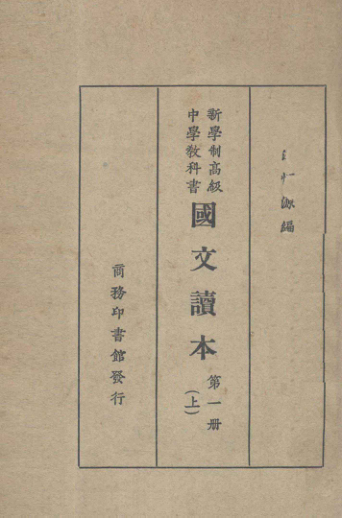 源編
新學制高級
中學教科書
國文讀本
第一册
(上)
商務印書館發行